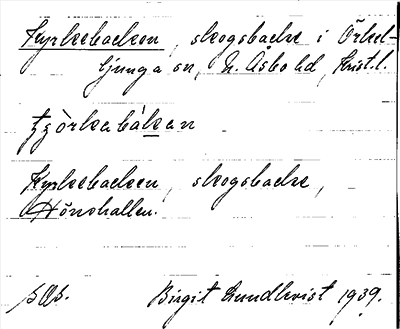 Kyrkebacken, skogsbacke i Örkel-
ljunga sn, N. Åsbo hd, Krist. l.
tjörkabakan
Kyrkebacken, skogsbacke,
Hönshallen.
Birgit Lundkvist 1939.